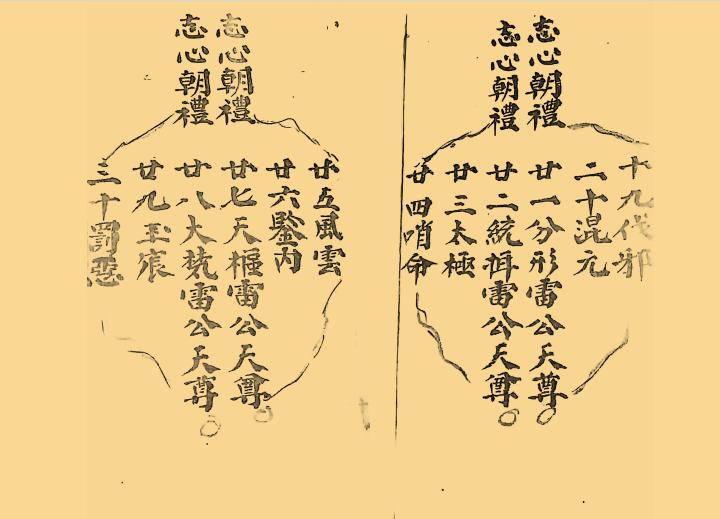 志心朝禮
志心朝禮
十九伐邪
二十混元
廿一分形雷公天尊
廿二統押雷公天尊
廿三太極
廿四哨命
志心朝禮
志心朝禮
廿五風雲
廿六鑒內
廿七天樞雷公天尊
廿八大梵雷公天尊
廿九玉宸
三十罰惡